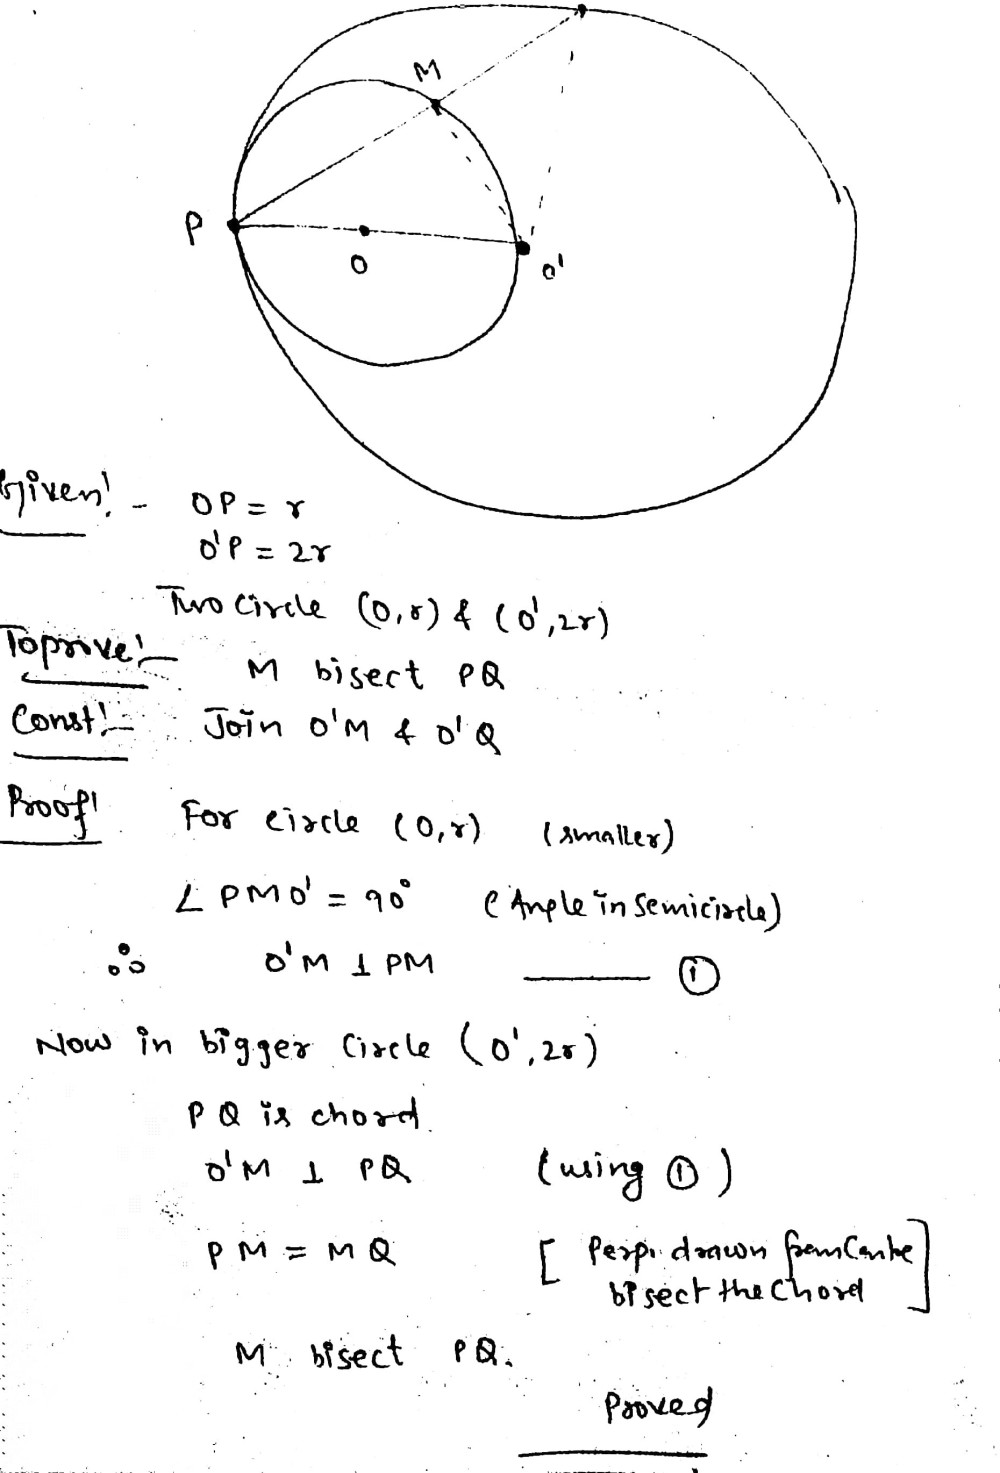 M
P
O
O'
Given! -
OP = r
O'P = 2r
Two Circle (O,r) & (O',2r)
Toprove! -
M bisect PQ
Const! -
Join O'M & O'Q
Proof!
For circle (O,r) (smaller)
∠ PMO' = 90° (Angle in semicircle)
∴ O'M ⊥ PM ——— ①
Now in bigger Circle (O',2r)
PQ is chord.
O'M ⊥ PQ (using ①)
PM = MQ [ Perp. drawn from Centre
bisect the Chord ]
M bisect PQ.
Proved